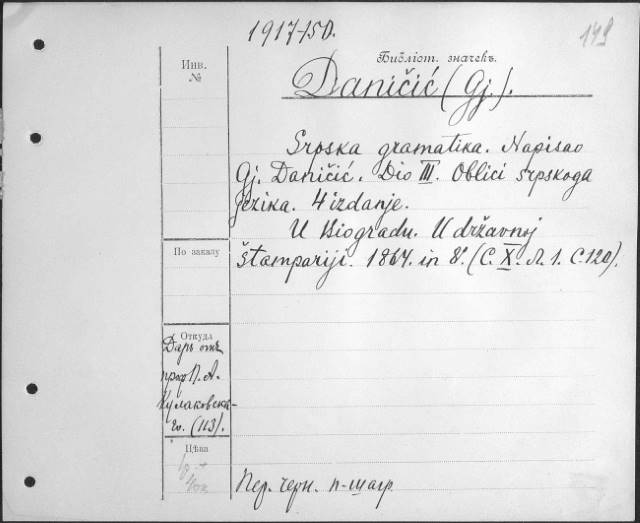 1917-150.
149
Библіот. значекъ.
Инв.
№
Daničić (Gj.).
Srpska gramatika. Napisao
Gj. Daničić. Dio III. Oblici srpskoga
jezika. 4 izdanje.
U Biogradu. U državnoj
По заказу
štampariji. 1864. in 8º. (С. X. Л. 1. С. 120).
Откуда
Даръ отъ
проф. П. А.
Кулаковска-
го. (113).
Цѣна
Пер. черн. п-шагр.